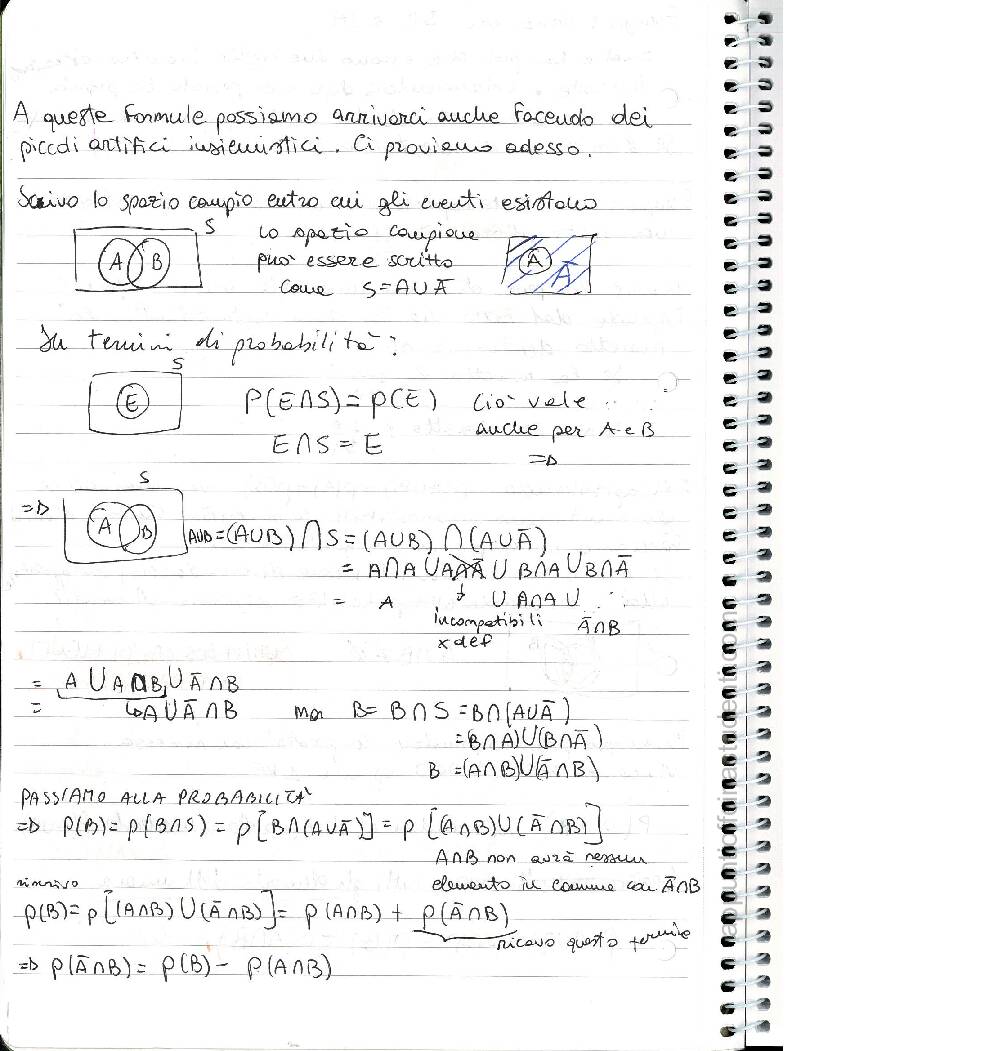 A queste formule possiamo arrivarci anche facendo dei
piccoli artifici insiemistici. Ci proviamo adesso.
Scrivo lo spazio campio entro cui gli eventi esistono
S
A B
lo spazio campione
può essere scritto
come S=A∪Ā
A
Ā
In termini di probabilità:
S
E
P(E∩S)=P(E) Ciò vale
anche per A e B
E∩S=E
=D
S
=D
A B
A∪B=(A∪B)∩S=(A∪B)∩(A∪Ā)
= A∩A∪A∩Ā∪B∩A∪B∩Ā
= A ∪ A∩A ∪
incompatibili Ā∩B
x def
= A∪A∩B∪Ā∩B
= A∪Ā∩B ma B=B∩S=B∩(A∪Ā)
=(B∩A)∪(B∩Ā)
B=(A∩B)∪(Ā∩B)
PASSIAMO ALLA PROBABILITA'
=D P(B)=P(B∩S)=P[B∩(A∪Ā)]=P[(A∩B)∪(Ā∩B)]
A∩B non avrà nessun
elemento in comune con Ā∩B
riscrivo
P(B)=P[(A∩B)∪(Ā∩B)]=P(A∩B)+P(Ā∩B)
ricavo questo termine
=D P(Ā∩B)=P(B)-P(A∩B)
appuntiofficinastudenti.com